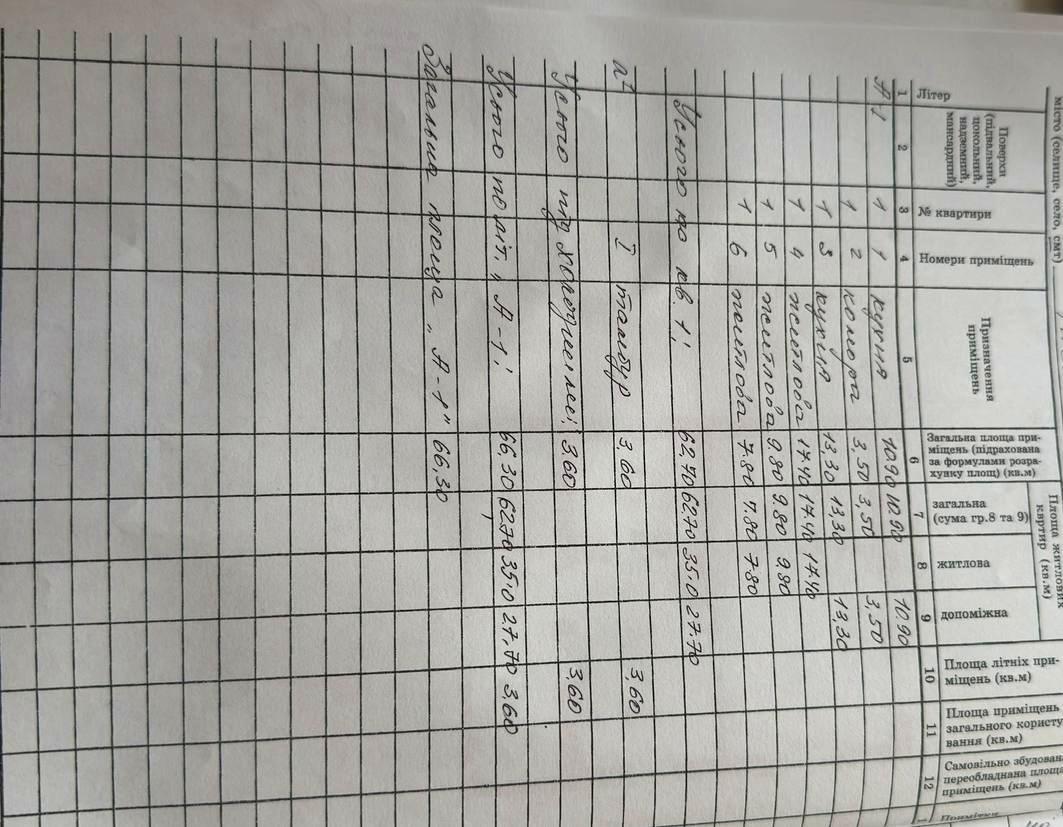 місто (селище, село, смт)
Літер
Поверхи (підвальний, цокольний, надземний, мансардний)
№ квартири
Номери приміщень
Призначення приміщень
Загальна площа приміщень (підрахована за формулами розрахунку площ) (кв.м)
Площа житлових квартир (кв.м)
загальна (сума гр.8 та 9)
житлова
допоміжна
Площа літніх приміщень (кв.м)
Площа приміщень загального користування (кв.м)
Самовільно збудована переобладнана площа приміщень (кв.м)
Примітки
1 2 3 4 5 6 7 8 9 10 11 12
А-1 1 1 кухня 10.90 10.90 10.90
1 2 комора 3,50 3,50 3,50
1 3 кухня 13,30 13.30 13,30
1 4 житлова 17.40 17.40 17.40
1 5 житлова 9.80 9.80 9.80
1 6 житлова 7.80 7.80 7.80
Усього по кв. 1: 62.70 62.70 35.0 27.70
а¹ I тамбур 3.60 3,60
Усього під холодними: 3.60 3,60
Усього по літ. „А-1: 66,30 62,70 35.0 27,70 3,60
Загальна площа „А-1" 66,30